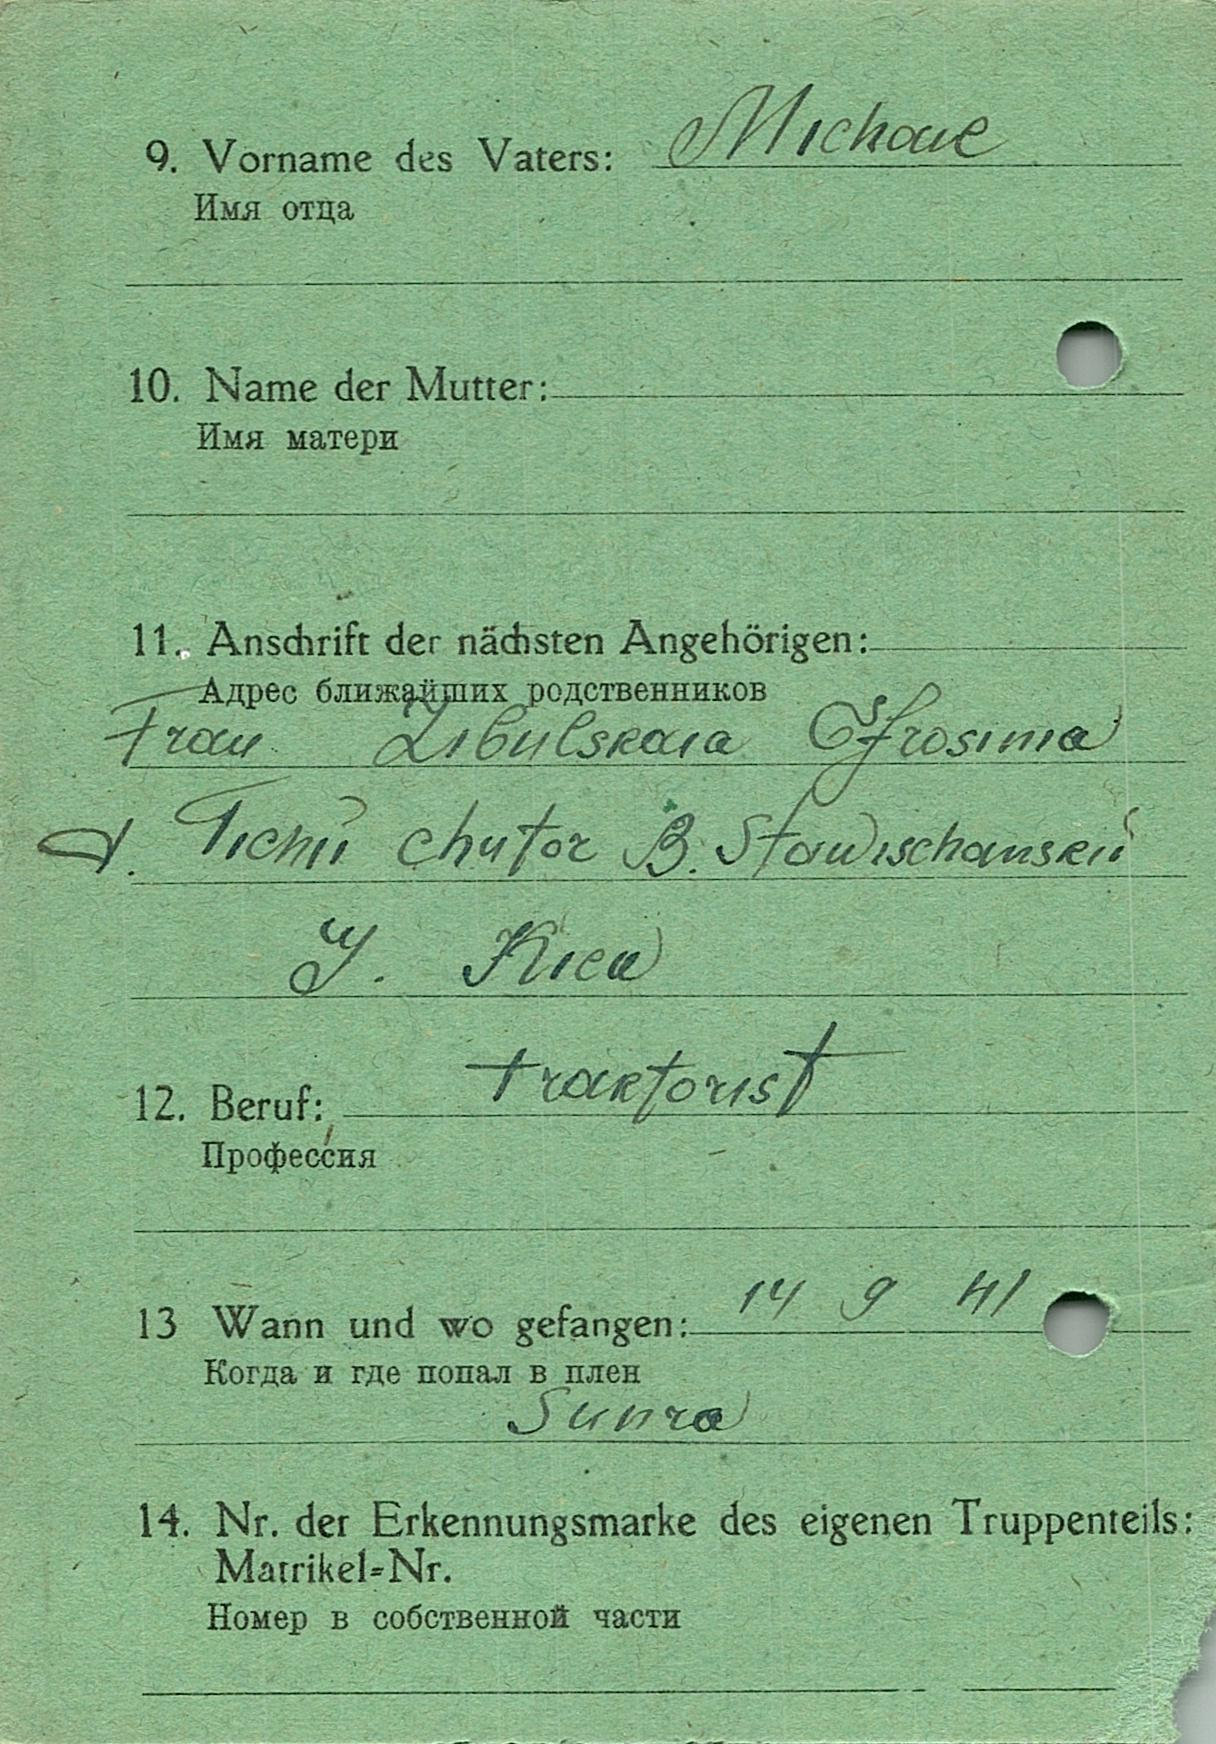 9. Vorname des Vaters: Michael
Имя отца
10. Name der Mutter:
Имя матери
11. Anschrift der nächsten Angehörigen:
Адрес ближайших родственников
Frau Zibulskaia Efrosinia
d. Tichii chutor B. Stawischanskii
G. Kiew
12. Beruf: traktorist
Профессия
13 Wann und wo gefangen: 14 9 41
Когда и где попал в плен
14. Nr. der Erkennungsmarke des eigenen Truppenteils:
Matrikel-Nr.
Номер в собственной части